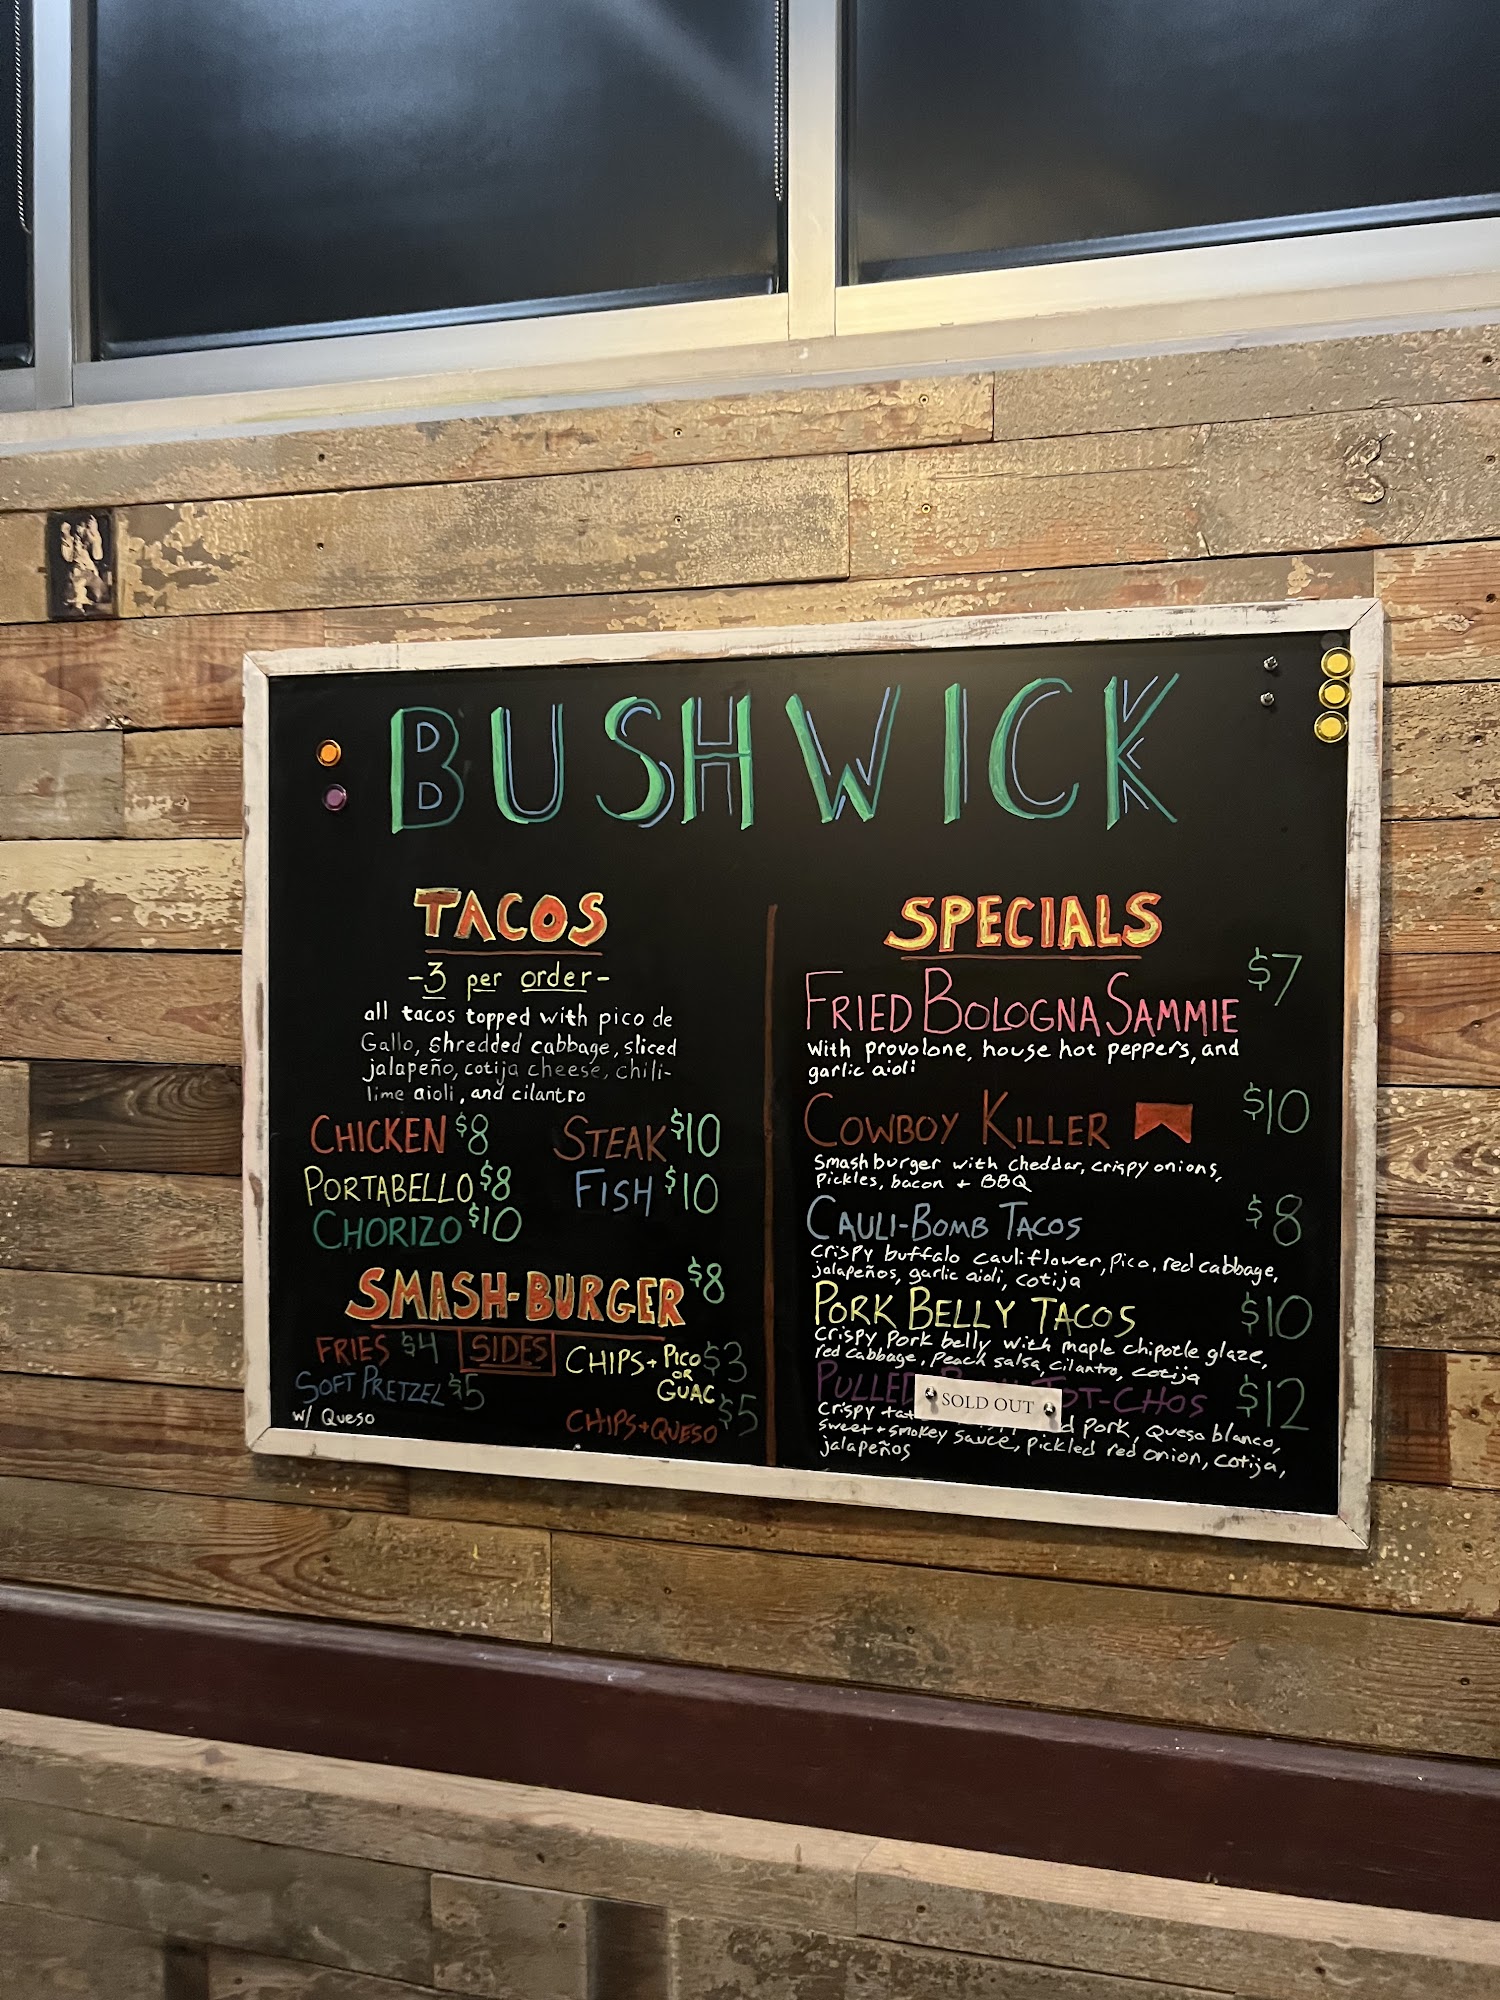 BUSHWICK
TACOS
-3 per order-
all tacos topped with pico de
Gallo, shredded cabbage, sliced
jalapeño, cotija cheese, chili-
lime aioli, and cilantro
CHICKEN $8
STEAK $10
PORTABELLO $8
FISH $10
CHORIZO $10
SMASH-BURGER $8
SIDES
FRIES $4
SOFT PRETZEL $5
w/ Queso
CHIPS + PICO $3
OR
GUAC
CHIPS + QUESO $5
SPECIALS
FRIED BOLOGNA SAMMIE $7
with provolone, house hot peppers, and
garlic aioli
COWBOY KILLER $10
Smashburger with cheddar, crispy onions,
Pickles, bacon + BBQ
CAULI-BOMB TACOS $8
crispy buffalo cauliflower, pico, red cabbage,
jalapeños, garlic aioli, cotija
PORK BELLY TACOS $10
crispy pork belly with maple chipotle glaze,
red cabbage, peach salsa, cilantro, cotija
PULLED T-CHOS $12
SOLD OUT
crispy pork, Queso blanco,
sweet + smokey sauce, pickled red onion, cotija,
jalapeños